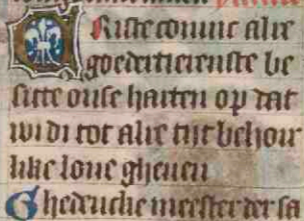 Riste comnic alre
goedertierenste be
sitte onse harten op dat
wi di tot alre tijt behou
like loue gheuen
Ghedencke meester der sa